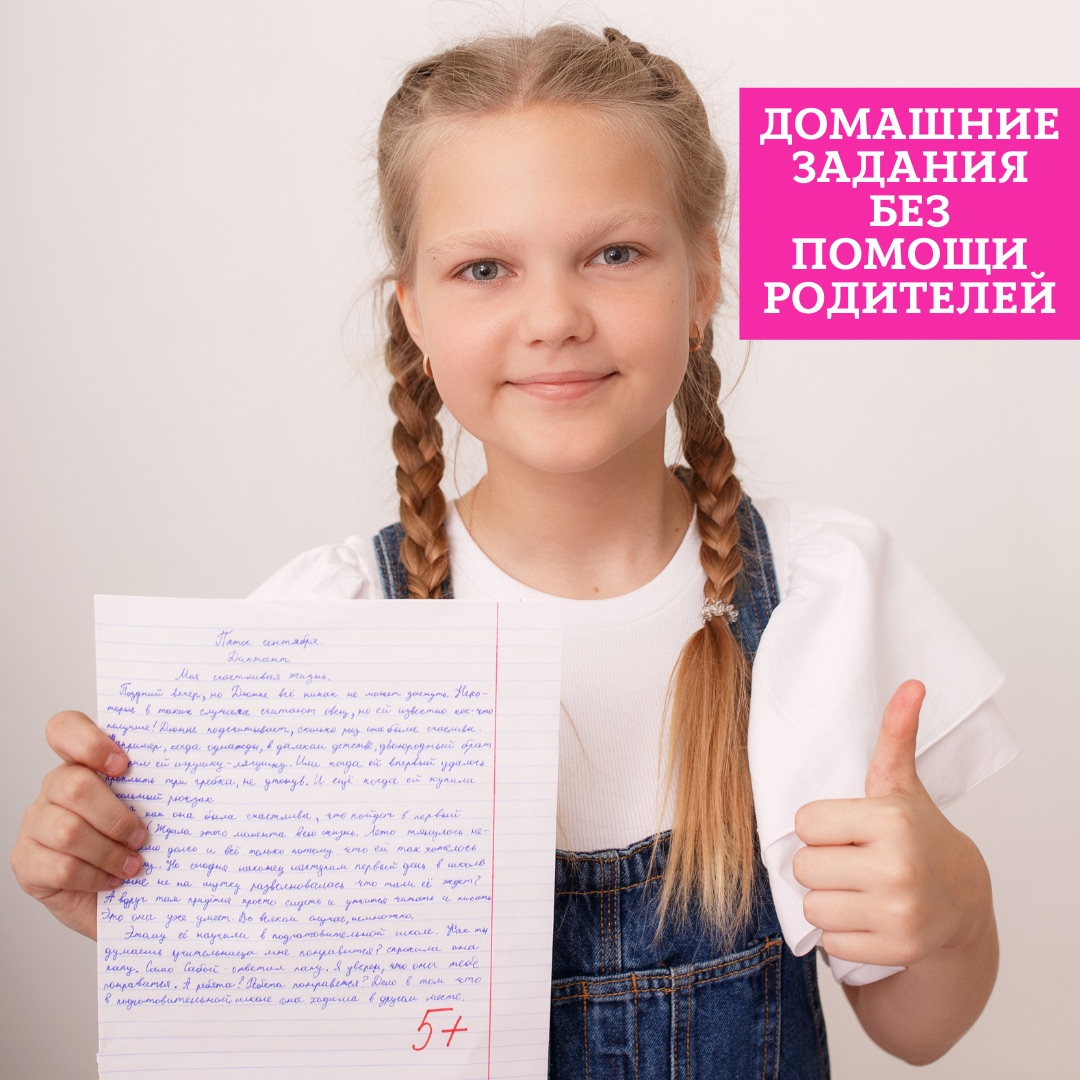 ДОМАШНИЕ
ЗАДАНИЯ
БЕЗ
ПОМОЩИ
РОДИТЕЛЕЙ
Пятое сентября.
Диктант.
Моя счастливая жизнь.
Поздний вечер, но Дюнне всё никак не может заснуть. Неко-
торые в таких случаях считают овец, но ей известно кое-что
получше! Дюнне подсчитывает, сколько раз она была счаслива.
когда однажды, в далеком детстве, двоюродный брат
ей игрушку-лягушку. Или когда ей впервый удалось
три гребка, не утонув. И ещё когда ей купили
рюкзак
как она была счастлива, что пойдет в первый
Ждала этого момента всю жизнь. Лето тянулось не-
долго и всё только потому что ей так хотелось
Но сегодня наконец наступил первый день в школе
не на шутку разволновалась что там её ждет?
А вдруг там придётся просто сидеть и учится читать и писать
Это она уже умеет. Во всяком случае, немножко.
Этому её научили в подготовительной школе. Как ты
думаешь учительница мне понравится? спросила она
папу. Само Сабой-ответил папу. Я уверен, что она тебе
понравится. А ребята? Ребята понравятся? Дело в том что
в подготовительной школе она ходила в другом месте.
5+